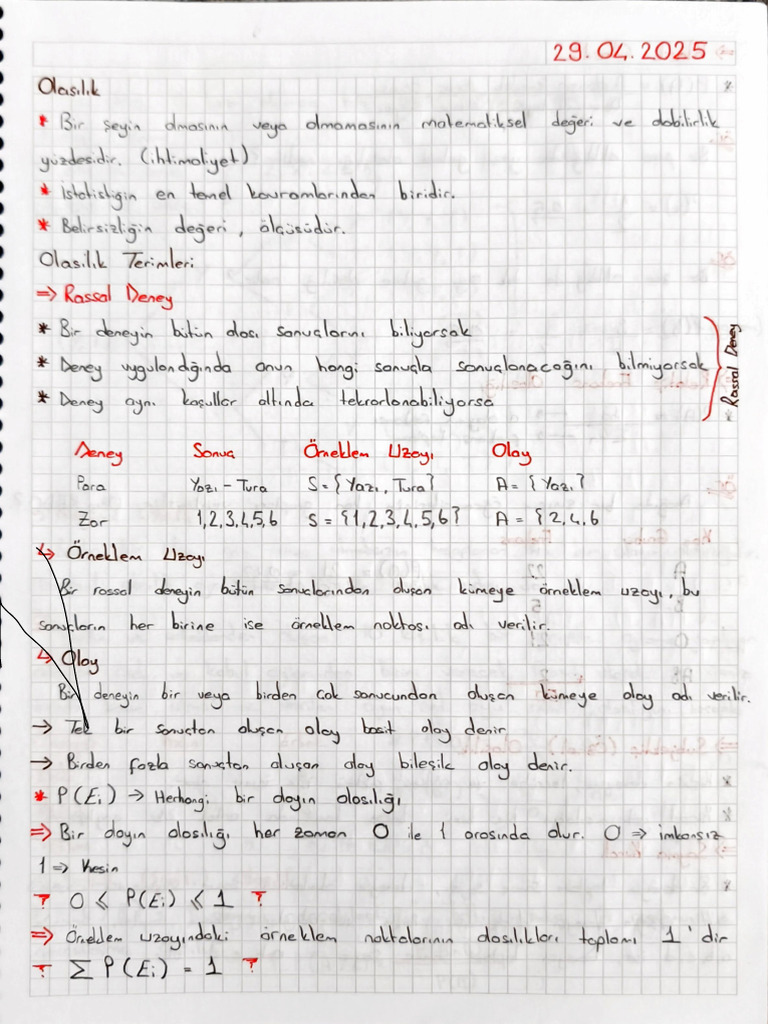 29.04.2025
Olasılık
* Bir şeyin olmasının veya olmamasının matematiksel değeri ve olabilirlik
yüzdesidir. (ihtimaliyet)
* İstatistiğin en temel kavramlarından biridir.
* Belirsizliğin değeri, ölçüsüdür.
Olasılık Terimleri
⇒ Rassal Deney
* Bir deneyin bütün olası sonuçlarını biliyorsak
* Deney uygulandığında onun hangi sonuçla sonuçlanacağını bilmiyorsak
* Deney aynı koşullar altında tekrarlanabiliyorsa
Rassal Deney
Deney Sonuç Örneklem Uzayı Olay
Para Yazı - Tura S = {Yazı, Tura} A = {Yazı}
Zar 1,2,3,4,5,6 S = {1,2,3,4,5,6} A = {2,4,6
↳ Örneklem Uzayı
Bir rassal deneyin bütün sonuçlarından oluşan kümeye örneklem uzayı, bu
sonuçların her birine ise örneklem noktası adı verilir.
↳ Olay
Bir deneyin bir veya birden çok sonucundan oluşan kümeye olay adı verilir.
→ Tek bir sonuçtan oluşan olay basit olay denir
→ Birden fazla sonuçtan oluşan olay bileşik olay denir.
* P(Ei) → Herhangi bir olayın olasılığı
⇒ Bir olayın olasılığı her zaman 0 ile 1 arasında olur. 0 ⇒ imkansız
1 ⇒ Kesin
? 0 ≤ P(Ei) ≤ 1 ?
⇒ Örneklem uzayındaki örneklem noktalarının olasılıkları toplamı 1'dir
? ∑ P(Ei) = 1 ?